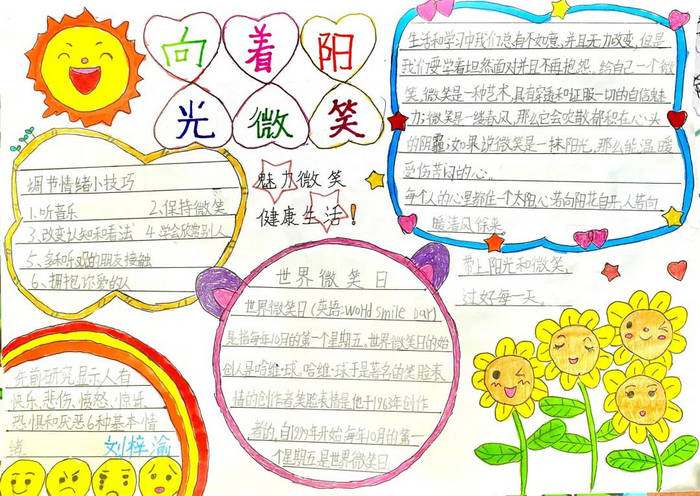 向着阳
光微笑
生活和学习中我们总有不如意,并且无力改变,但是
我们要学着坦然面对并且不再抱怨。给自己一个微
笑,微笑是一种艺术,具有穿透和征服一切的自信魅
力;微笑是一缕春风,那么它会吹散郁积在心头
的阴霾;如果说微笑是一抹阳光,那么能温暖
受伤苦闷的心。
每个人的心里都住一个太阳,心若向阳花自开,人若向
暖清风徐来。
调节情绪小技巧
1.听音乐 2.保持微笑
3.改变认知和看法 4.学会欣赏别人
5.多和乐观的朋友接触
6.拥抱你爱的人
魅力微笑
健康生活!
带上阳光和微笑,
过好每一天。
世界微笑日
世界微笑日(英语:World Smile Day)
是指每年10月的第一个星期五。世界微笑日的始
创人是哈维·球。哈维·球于是著名的笑脸表
情的创作者笑脸表情是他于1963年创作
者的,自1999年开始,每年10月的第一
个星期五是世界微笑日
先前研究显示人有
快乐、悲伤、愤怒、惊乐
恐惧和厌恶6种基本情
绪
刘梓渝